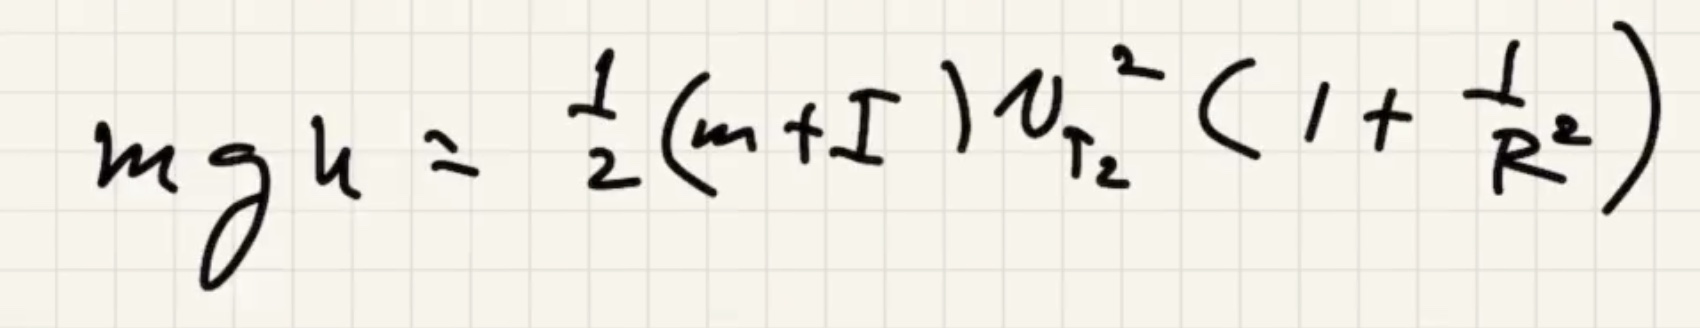 mgh = 1/2 (m + I) v_{T_2}^2 (1 + 1/R^2)